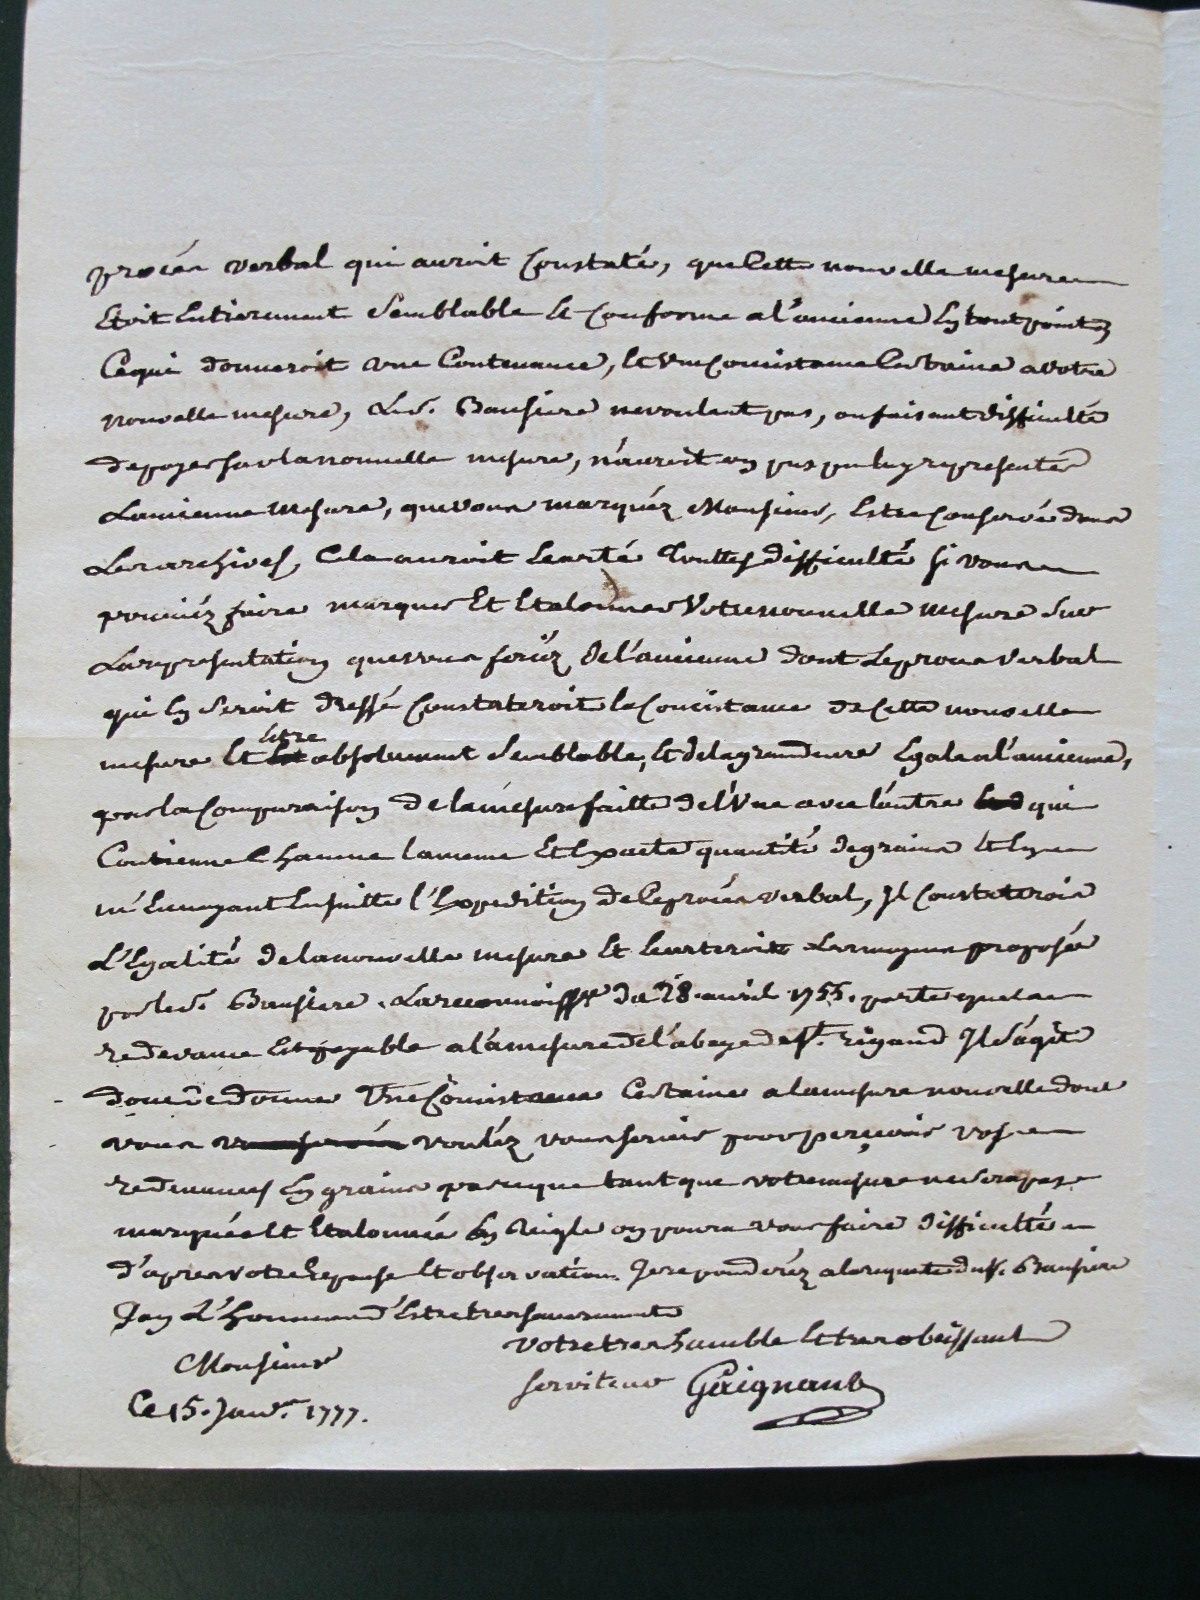 procés verbal qui auroit Constaté, que Cette nouvelle mesure
Etoit Entierement Semblable Et Conforme a l'ancienne En tout points
Ce qui donneroit une Contenance, Et une Concistance Certaine a votre
nouvelle mesure, Le S. Bausiere ne voulant pas, ou faisant difficulté
de payer sur la nouvelle mesure, n'auroit on pas pu luy representer
L'ancienne Mesure, que vous marquéz Monsieur, Estre Conservée dans
Les archives, Cela auroit Ecarté Touttes difficulté si vous
pouviéz faire marquer Et Etalonner Votre nouvelle Mesure Sur
La representation que vous feriéz de l'ancienne dont Le proces Verbal
qui En Seroit dressé Constateroit la Concistance de Cette nouvelle
mesure Et Estre absolument Semblable, Et de la grandeure Egale a l'ancienne,
par la Comparaison de la mesure faitte de l'Une avec l'autre qui
Contienne Chacune la meme Et Exacte quantité de grains Et En
m'Envoyant Ensuitte l'Expedition de Ce procés verbal, Il Constateroit
L'Egalité de la nouvelle mesure Et Ecarteroit Les moyens proposés
par le S. Bausiere. La reconnoiss.ce du 28. avril 1755. porte que la
redevance Est payable a la mesure de l'abaye de St. rigaud Il s'agit
donc de donner Une Concistance Certaine a la mesure nouvelle dont
vous voulez vous servir pour perçevoir vos
redevances En grains parce que tant que votre mesure ne Sera pas
marquée Et Etalonnée En Reigle on poura vous faire difficulté
d'apres votre Reponse Et observations Je repondréz a la requete du S. Bausiere
J'ay L'honneur d'Estre tres sincerement
Votre tres humble Et tres obeissant
Monsieur
serviteur Gaignard
Ce 15. Janv.r 1777.